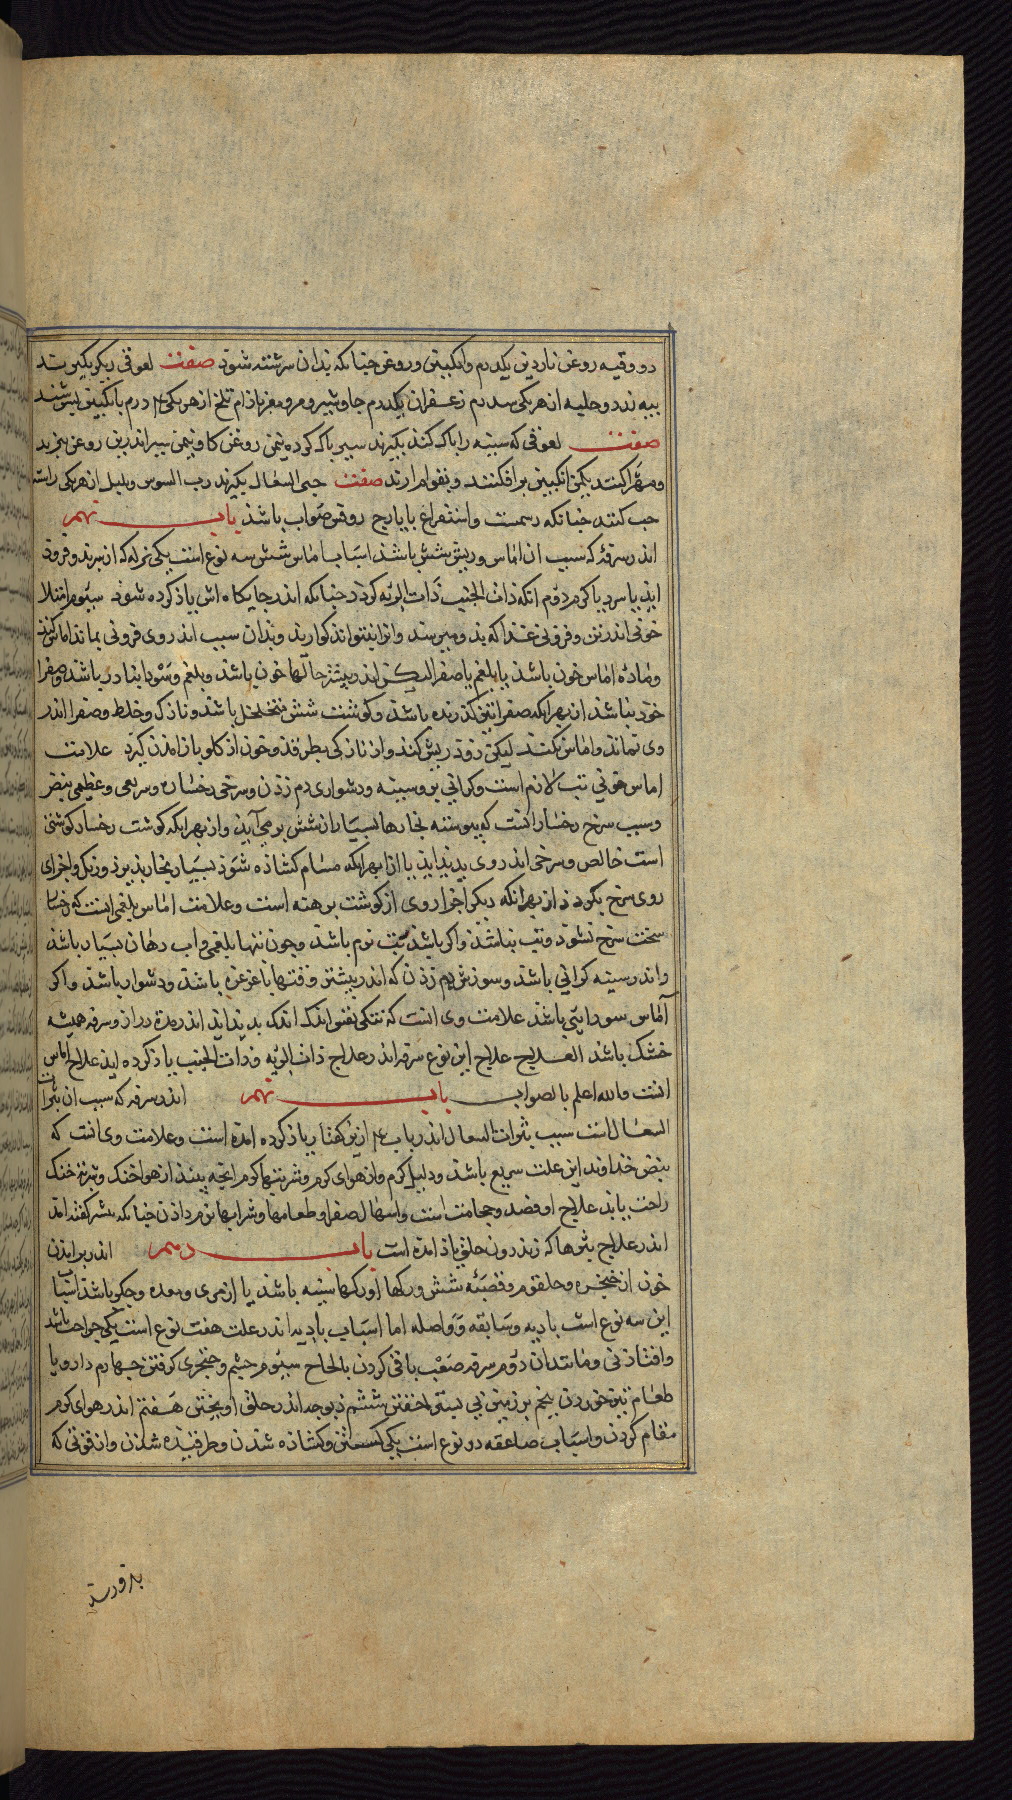 دو وقیه روغن ناردین یکدرم وانکبین وروغن جنانکه بذان سرشته شوذ صفت لعوقی دیکر بکیرند
زعفران یکدرم جاوشیر و مر و مغز باذام تلخ از هر یکی درم بانکبین بسرشند
صفت لعوقی که سینه را باک کند بکیرند سیر باک کرده یمن روغن کاو نیمن سیر اندرین روغن ببزند
ومهرا کنند یکمن انکبین برافکنند وبقوام ارند صفت حبی السعال بکیرند رب السوس وبلبل از هر یکی راست
حب کنند جنانکه رسمست واستفراغ بایارج روفس صواب باشذ باب نهم
اندر سرفه که سبب ان اماس وریش شش باشذ اسباب اماس شش سه نوع است یکی نزله که از سر فروذ
ایذ یا سرد یا کرم دوم انکه ذات الجنب ذات الریه کردد جنانکه اندر جایکاه اش یاذ کرده شوذ سیوم امتلا
خونی اندر تن وفزونی غذا که بذو میرسد وانرا نتواند کوارید وبذان سبب اندر وی فزونی بماند اماس کند
وماده اماس خون باشذ یا بلغم یا صفرا لیکن اندر بیشتر حالها خون باشذ وبلغم وسودا نادر باشذ وصفرا
خود نباشذ از بهر انکه صفرا تیز کذرنده باشذ وکوشت شش متخلخل باشذ ونازک وخلط وصفرا اندر
وی نماند واماس نکند لیکن زوذ ریش کند واز نازکی بطرقذ وخون از کلو بازامذن کیرد علامت
اماس خونی تب لازم است وکرانی بر وسینه ودشواری دم زذن وسرخی رخساره وسریعی وعظیمی نبض
وسبب سرخ رخسار انست که بیوسته بخارها بسیار از شش برمی آیذ واز بهر انکه کوشت رخسار کوشتی
است خالص وسرخی اندر وی بدید ایذ یا از بهر انکه مسام کشاذه شوذ بسیار بخار بذیرذ ودیکر اجزای
روی سرخ نکردد از بهر انکه دیکر اجزا روی از کوشت برهنه است وعلامت اماس بلغمی انست که رخسار
سخت سرخ نشوذ وتب نباشذ واکر باشذ تب نرم باشذ وجون تبها بلغمی واب دهان بسیار باشذ
واندر سینه کرانی باشذ وسوزش دم زذن که اندر بیشتر وقتها باغرغره باشذ ودشوار باشذ واکر
آماس سودایی باشذ علامت وی انست که تنکی نفس اندک اندک بدید ایذ اندر مدة دراز وسرفه همیشه
خشک باشذ العلاج علاج این نوع سرفه اندر علاج ذات الریه وذات الجنب یاذ کرده ایذ علاج اماس
انست والله اعلم بالصواب باب نهم اندر سرفه که سبب ان بثرات
السعال است سبب بثرات السعال اندر باب از این کفتار یاذ کرده امده است وعلامت وی انست که
نبض خذاوند این علت سریع باشذ ودلیل کرم واز هوای کرم وشربتها کرم رنجه بیند از هوا خنک وشربت خنک
راحت یابذ علاج او فصد وحجامت است واسهال صفرا وطعامها وشرابها نرم داذن جنانکه بیشتر کفته امد
اندر علاج بثرها که اندرون حلق یاذ امده است باب دهم اندر برامذن
خون از حنجره وحلقوم وقصبه شش ورکها اورکها سینه باشذ یا از مری ومعده وجکر باشذ اسباب
این سه نوع است بادیه وسابقه وواصله اما اسباب بادیه اندر علت هفت نوع است یکی جراحت باشذ
وافتاذنی ومانند ان دوم سرفه صعب یا قی کردن بالحاح سیوم خشم وضجری کرفتن جهارم دارو یا
طعام تیز خوردن بنجم بر زمین بی بستر خفتن ششم دیوجه اندر حلق اویختن هفتم اندر هوای کرم
مقام کردن واسباب دو نوع است یکی کسستن وکشاذه شذن وطرقیذه شذن وانقوتی که